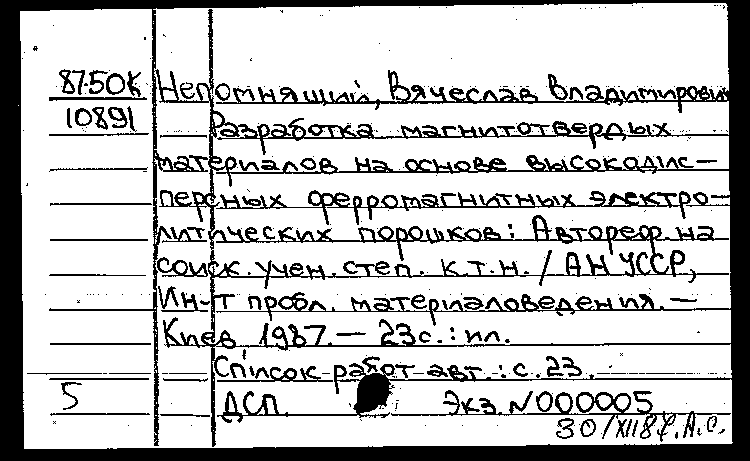 87-50К Непомнящий, Вячеслав Владимирович
10891 Разработка магнитотвердых
материалов на основе высокодис-
персных ферромагнитных электро-
литических порошков: Автореф. на
соиск. учен. степ. к.т.н. / АН УССР,
Ин-т пробл. материаловедения. —
Киев 1987. — 23 с. : ил.
Список работ авт.: с. 23.
5 ДСП. Экз. N000005
30/XII 87. А.С.